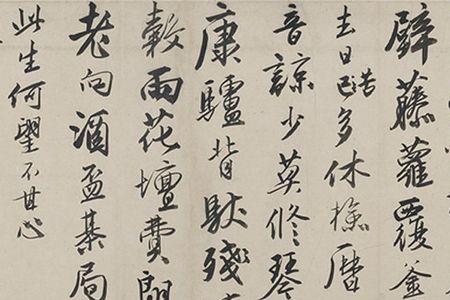 壁藤蘿覆釜
去日已多休檢曆
音諒少莫修琴
康驢背馱殘
穀雨花壇費朗
老向酒盃棊局
此生何望不甘心